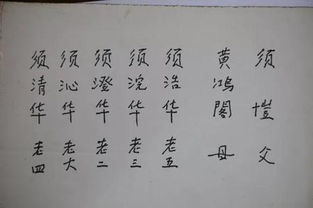 须恺 父
黄鸿阁 母
须浩华 老五
须浣华 老三
须澄华 老二
须沁华 老大
须清华 老四